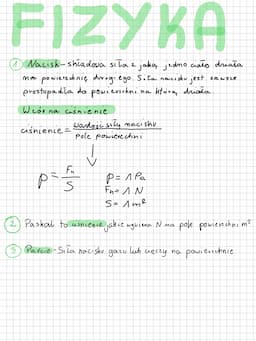 FIZYKA
① Nacisk - składowa siła z jaką jedno ciało działa
na powierzchnię drugiego. Siła nacisku jest zawsze
prostopadła do powierzchni na którą działa.
Wzór na ciśnienie
ciśnienie = wartość siły nacisku
pole powierzchni
p = Fn / S
p = 1 Pa
Fn = 1 N
S = 1 m²
② Paskal to ciśnienie jakie wywiera N na pole powierzchni m²
③ Parcie - Siła nacisku gazu lub cieczy na powierzchnie